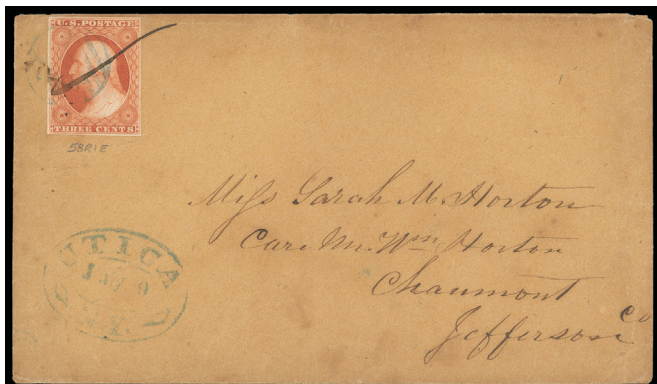 U.S. POSTAGE
THREE CENTS
58R1E
Miss Sarah M. Horton
Care Mr. Wm Horton
Chaumont
Jefferson Co
UTICA
N.Y.